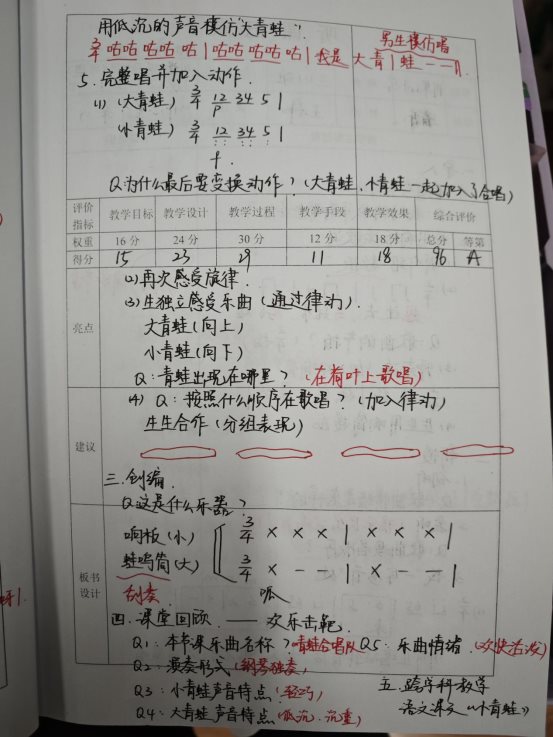 用低沉的声音模仿"大青蛙".
男生模仿唱
3/4 咕咕 咕咕 咕 | 咕咕 咕咕 咕 | 我是 大青 | 蛙 - - ||
5. 完整唱并加入动作.
(1) (大青蛙) 3/4 12 34 5 |
P
(小青蛙) 3/4 12 34 5 |
f.
Q: 为什么最后要变换动作? (大青蛙、小青蛙一起加入了合唱)
评价指标 教学目标 教学设计 教学过程 教学手段 教学效果 综合评价
权重 16 分 24 分 30 分 12 分 18 分 总分 等第
得分 15 23 29 11 18 96 A
亮点
(2) 再次感受旋律.
(3) 生独立感受乐曲 (通过律动).
大青蛙 (向上)
小青蛙 (向下)
Q: 青蛙出现在哪里? (在荷叶上歌唱)
建议
(4) Q: 按照什么顺序在歌唱? (加入律动)
生生合作 (分组表现)
三. 创编.
Q: 这是什么乐器?
板书设计
响板 (小) 3/4 × × × | × × × |
蛙鸣筒 (大) 3/4 × - - | × - - |
刮奏 呱
四. 课堂回顾. —— 欢乐击靶.
Q1: 本节课乐曲名称? 青蛙合唱队 Q5: 乐曲情绪. (欢快活泼)
Q2: 演奏形式 (钢琴独奏)
Q3: 小青蛙声音特点 (轻巧)
Q4: 大青蛙声音特点 (低沉、沉重)
五. 跨学科教学
语文课文《小青蛙》